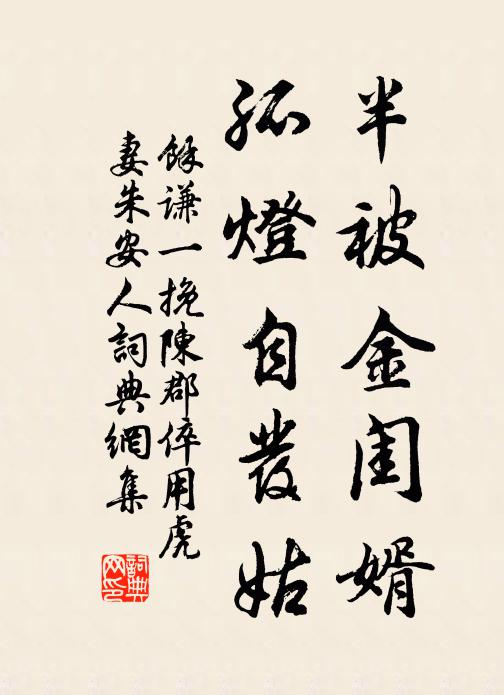 半被金閨婿
孤燈自發姑
餘謙一挽陳郡倅用虎
妻朱安人詞典網集
詞典网印